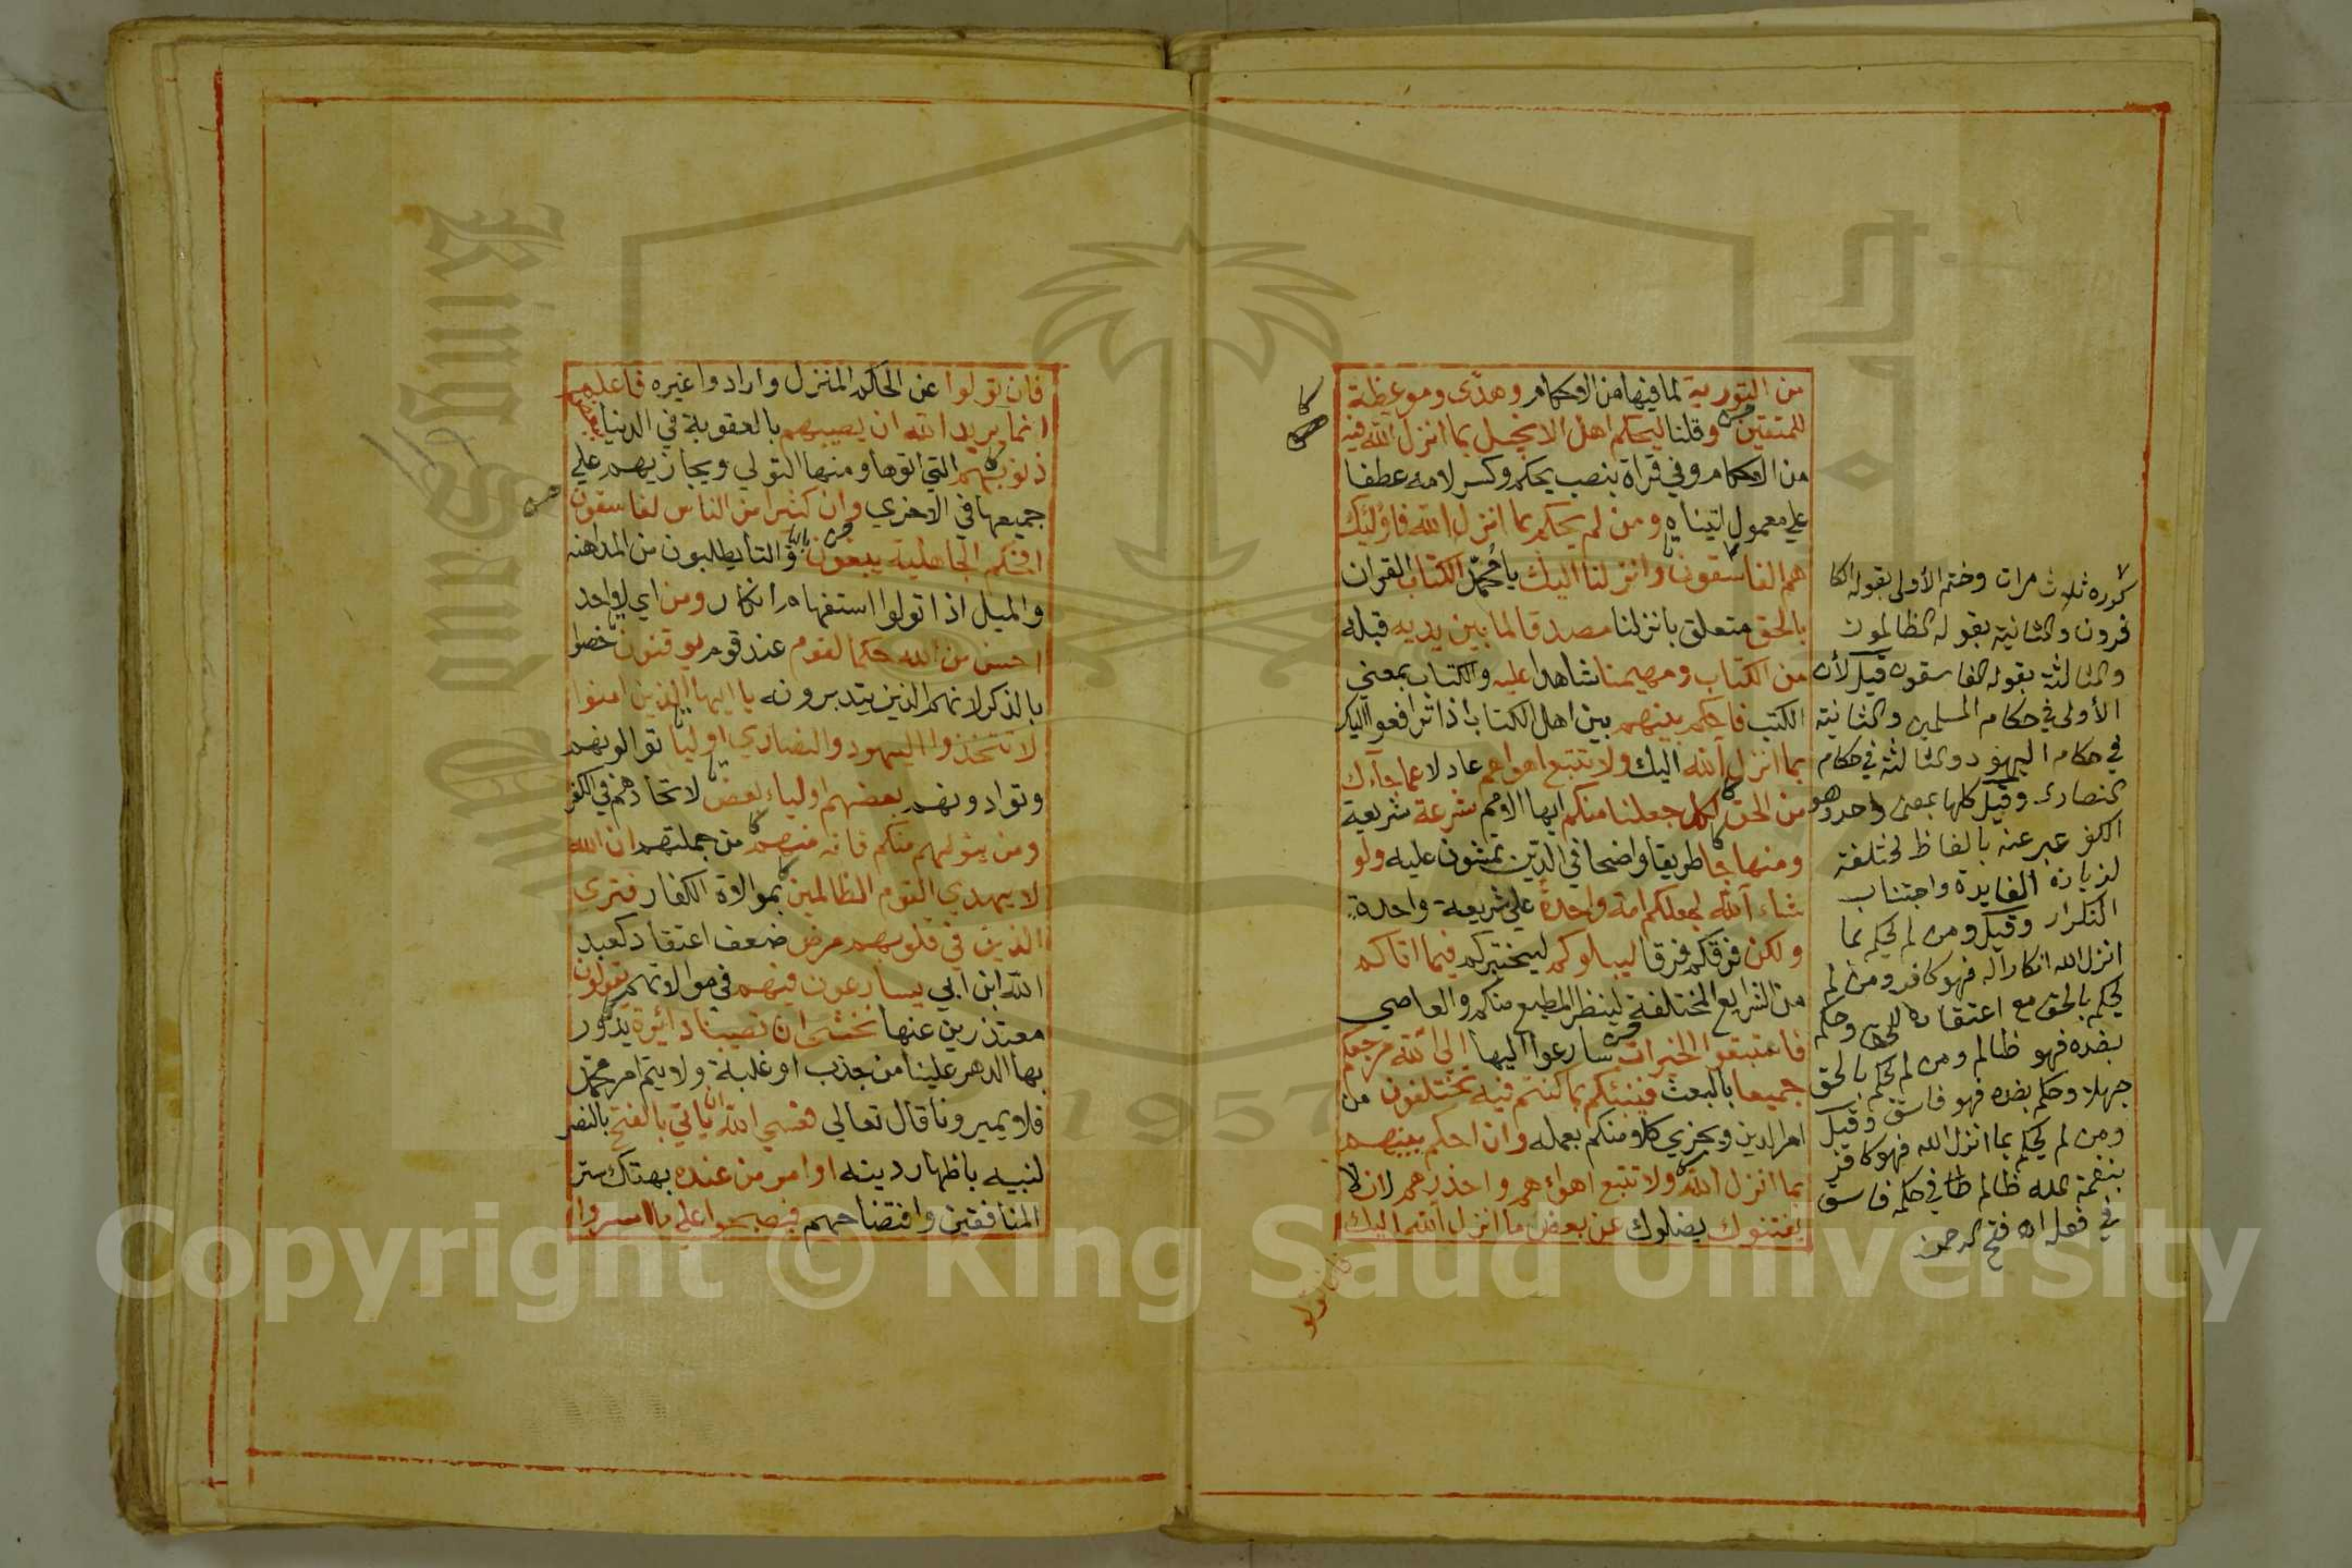 من التورية لما فيها من الاحكام وهدى وموعظة
للمتقين وقلنا ليحكم اهل الانجيل بما انزل الله فيه
من الاحكام وفي قراة بنصب يحكم وكسر لامه عطفا
علي معمول اتيناه ومن لم يحكم بما انزل الله فاولئك
هم الفاسقون وانزلنا اليك يا محمد الكتاب القران
بالحق متعلق بانزلنا مصدقا لما بين يديه قبله
من الكتاب ومهيمنا شاهدا عليه والكتاب بمعني
الكتب فاحكم بينهم بين اهل الكتاب اذا ترافعوا اليك
بما انزل الله اليك ولا تتبع اهواهم عادلا عما جآءك
من الحق لكل جعلنا منكم ايها الامم شرعة شريعة
ومنهاجا طريقا واضحا في الدين تمشون عليه ولو
شاء الله لجعلكم امة واحدة علي شريعة واحدة
ولكن فرقكم فرقا ليبلوكم ليختبركم فيما اتاكم
من الشرايع المختلفة لينظر المطيع منكم والعاصي
فاستبقوا الخيرات سارعوا اليها الي الله مرجعكم
جميعا بالبعث فينبئكم بما كنتم فيه تختلفون من
امر الدين ويجزي كلا منكم بعمله وان احكم بينهم
بما انزل الله ولا تتبع اهواءهم واحذرهم لان لا
يفتنوك يضلوك عن بعض ما انزل الله اليك
فان تولو
كرره ثلاث مرات وختم الأولى بقوله الكا
فرون والثانية بقوله الظالمون
والثالثة بقوله الفاسقون قيل لأن
الأولى في حكام المسلمين والثانية
في حكام اليهود والثالثة في حكام
النصارى وقيل كلها بمعنى واحد وهو
الكفر عبر عنه بالفاظ مختلفة
لزيادة الفايدة واجتناب
التكرار وقيل ومن لم يحكم بما
انزل الله انكارا له فهو كافر ومن لم
يحكم بالحق مع اعتقاده للحق وحكم
بضده فهو ظالم ومن لم يحكم بالحق
جهلا وحكم بضده فهو فاسق وقيل
ومن لم يحكم بما انزل الله فهو كافر
بنعمة الله ظالم في حكمه فاسق
في فعله اه فتح الرحمن
فان تولوا عن الحكم المنزل وارادوا غيره فاعلم
انما يريد الله ان يصيبهم بالعقوبة في الدنيا ببعض
ذنوبهم التي اتوها ومنها التولي ويجازيهم علي
جميعها في الاخري وان كثيرا من الناس لفاسقون
افحكم الجاهلية يبغون باليا والتا يطلبون من المداهنه
والميل اذا تولوا استفهام انكار ومن اي لا احد
احسن من الله حكما لقوم عند قوم يوقنون خصوا
بالذكر لانهم الذين يتدبرونه يا ايها الذين امنوا
لا تتخذوا اليهود والنصاري اوليا توالونهم
وتوادونهم بعضهم اولياء بعض لاتحادهم في الكفر
ومن يتولهم منكم فانه منهم من جملتهم ان الله
لا يهدي القوم الظالمين بموالاة الكفار فتري
الذين في قلوبهم مرض ضعف اعتقاد كعبد
الله ابن ابي يسارعون فيهم في موالاتهم يقولون
معتذرين عنها نخشى ان تصيبنا دائرة يدور
بها الدهر علينا من جذب او غلبة ولا يتم امر محمد
فلا يميرونا قال تعالي فعسي الله ان ياتي بالفتح بالنصر
لنبيه باظهار دينه او امر من عنده بهتك ستر
المنافقين وافتضاحهم فيصبحوا علي ما اسروا
King Saud University
1957
Copyright © King Saud University